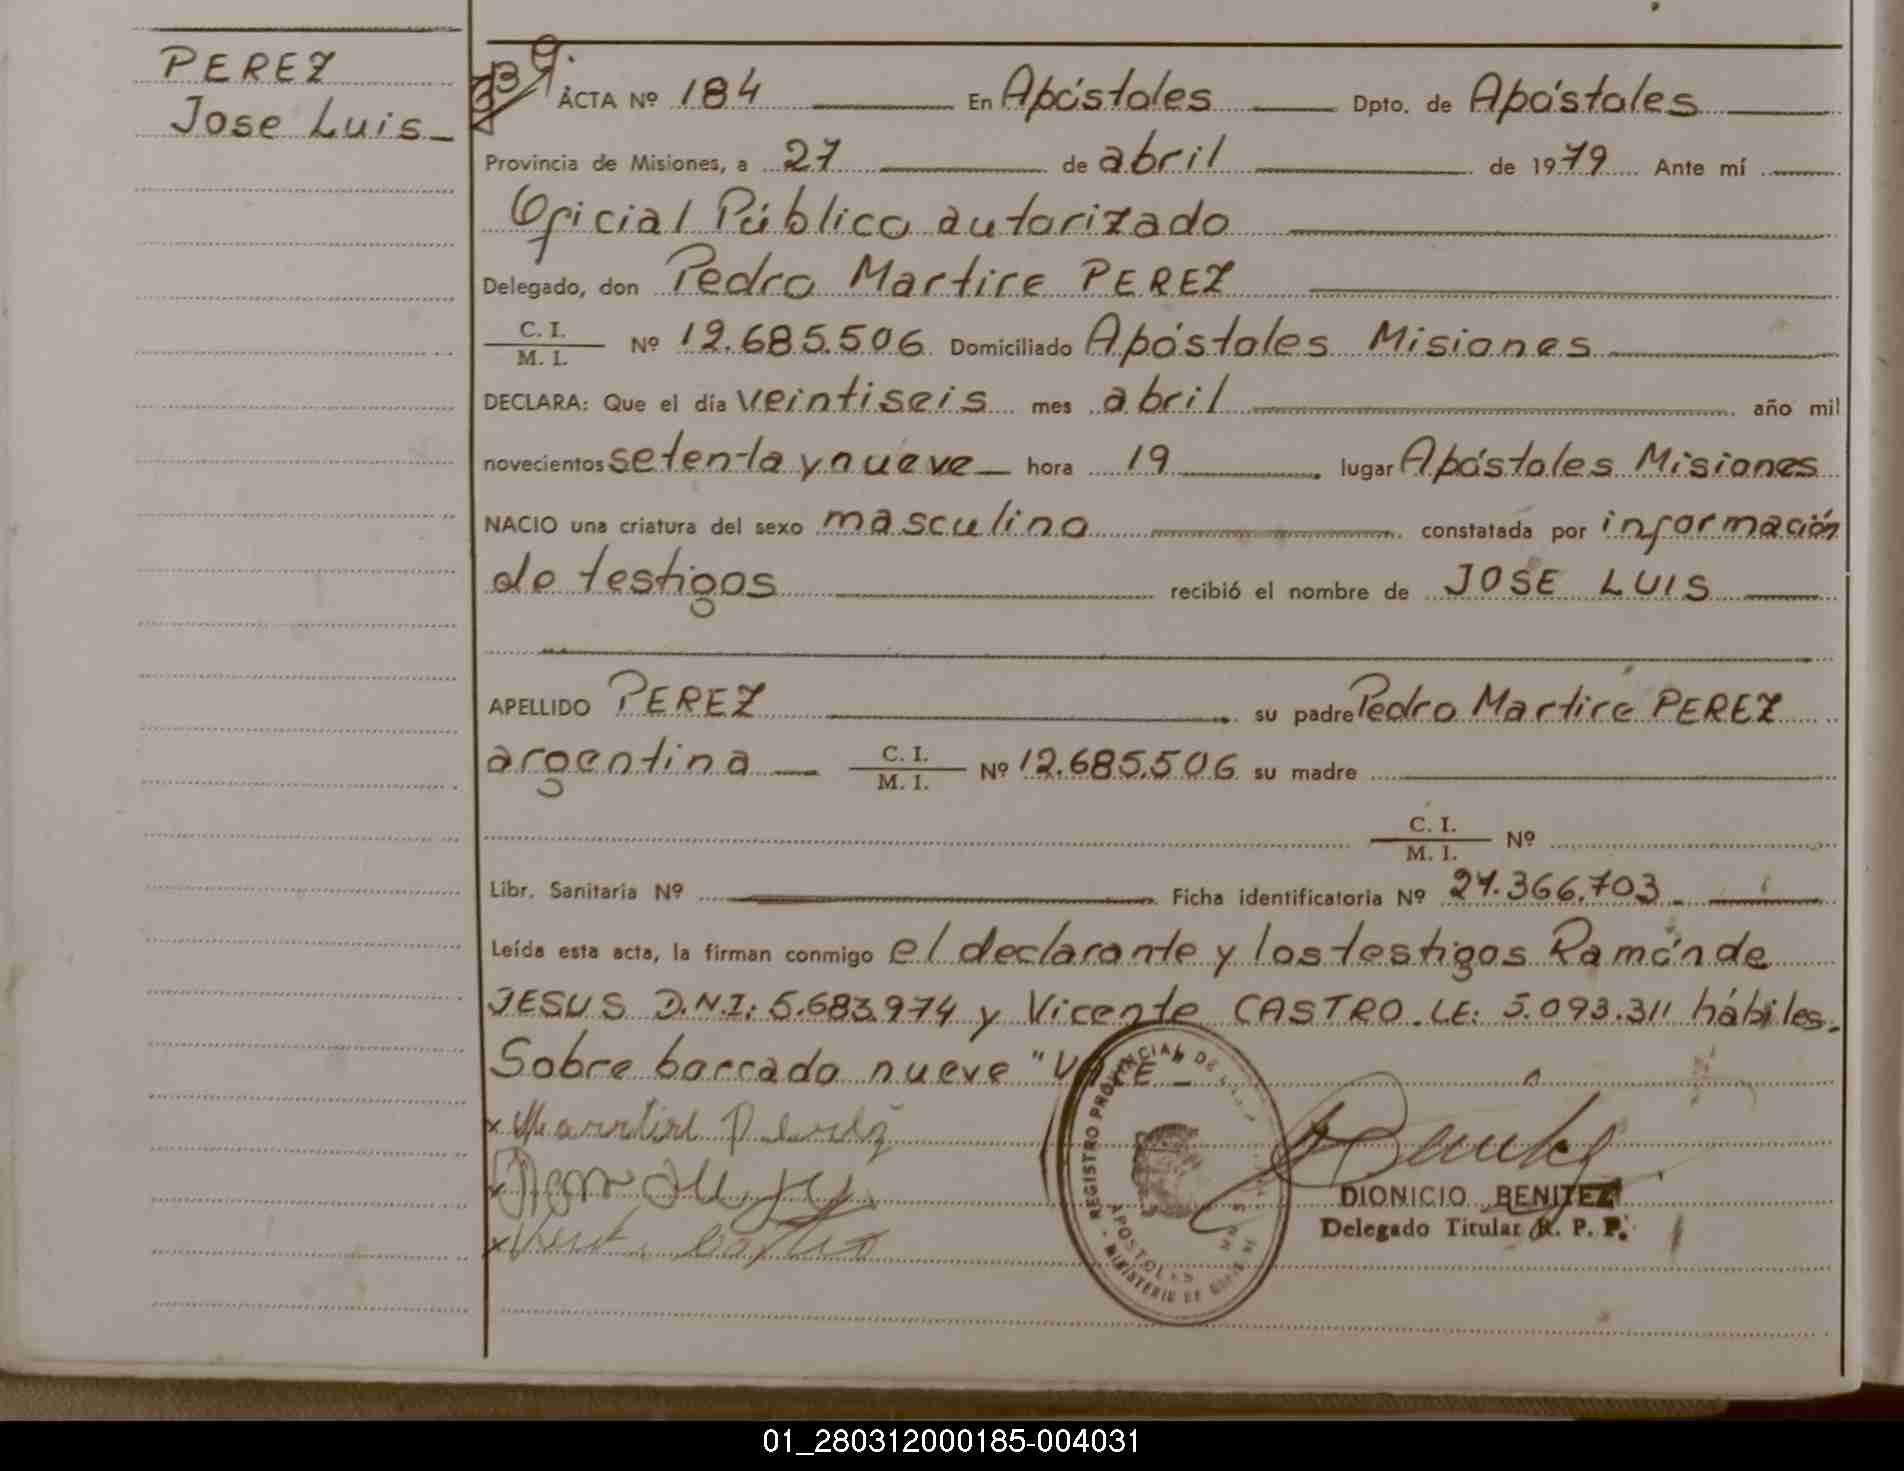 PEREZ
Jose Luis_
ACTA Nº 184 En Apóstoles Dpto. de Apóstoles
Provincia de Misiones, a 27 de abril de 1979 Ante mí
Oficial Público autorizado
Delegado, don Pedro Martire PEREZ
C. I. / M. I. Nº 12.685.506 Domiciliado Apóstoles Misiones
DECLARA: Que el día veintiseis mes abril año mil
novecientos setenta y nueve hora 19 lugar Apóstoles Misiones
NACIO una criatura del sexo masculino constatada por información
de testigos recibió el nombre de JOSE LUIS
APELLIDO PEREZ su padre Pedro Martire PEREZ
argentina C. I. / M. I. Nº 12.685.506 su madre
C. I. / M. I. Nº
Libr. Sanitaria Nº Ficha identificatoria Nº 27.366.703
Leída esta acta, la firman conmigo el declarante y los testigos Ramón de
JESUS D.N.I: 5.683.974 y Vicente CASTRO. LE: 5.093.311 hábiles.
Sobre borrado nueve "VALE
x Marrtire Perez
x
x
REGISTRO PROVINCIAL DE
APOSTOLES
MINISTERIO DE
DIONICIO BENITEZ
Delegado Titular R. P. P.
01_280312000185-004031